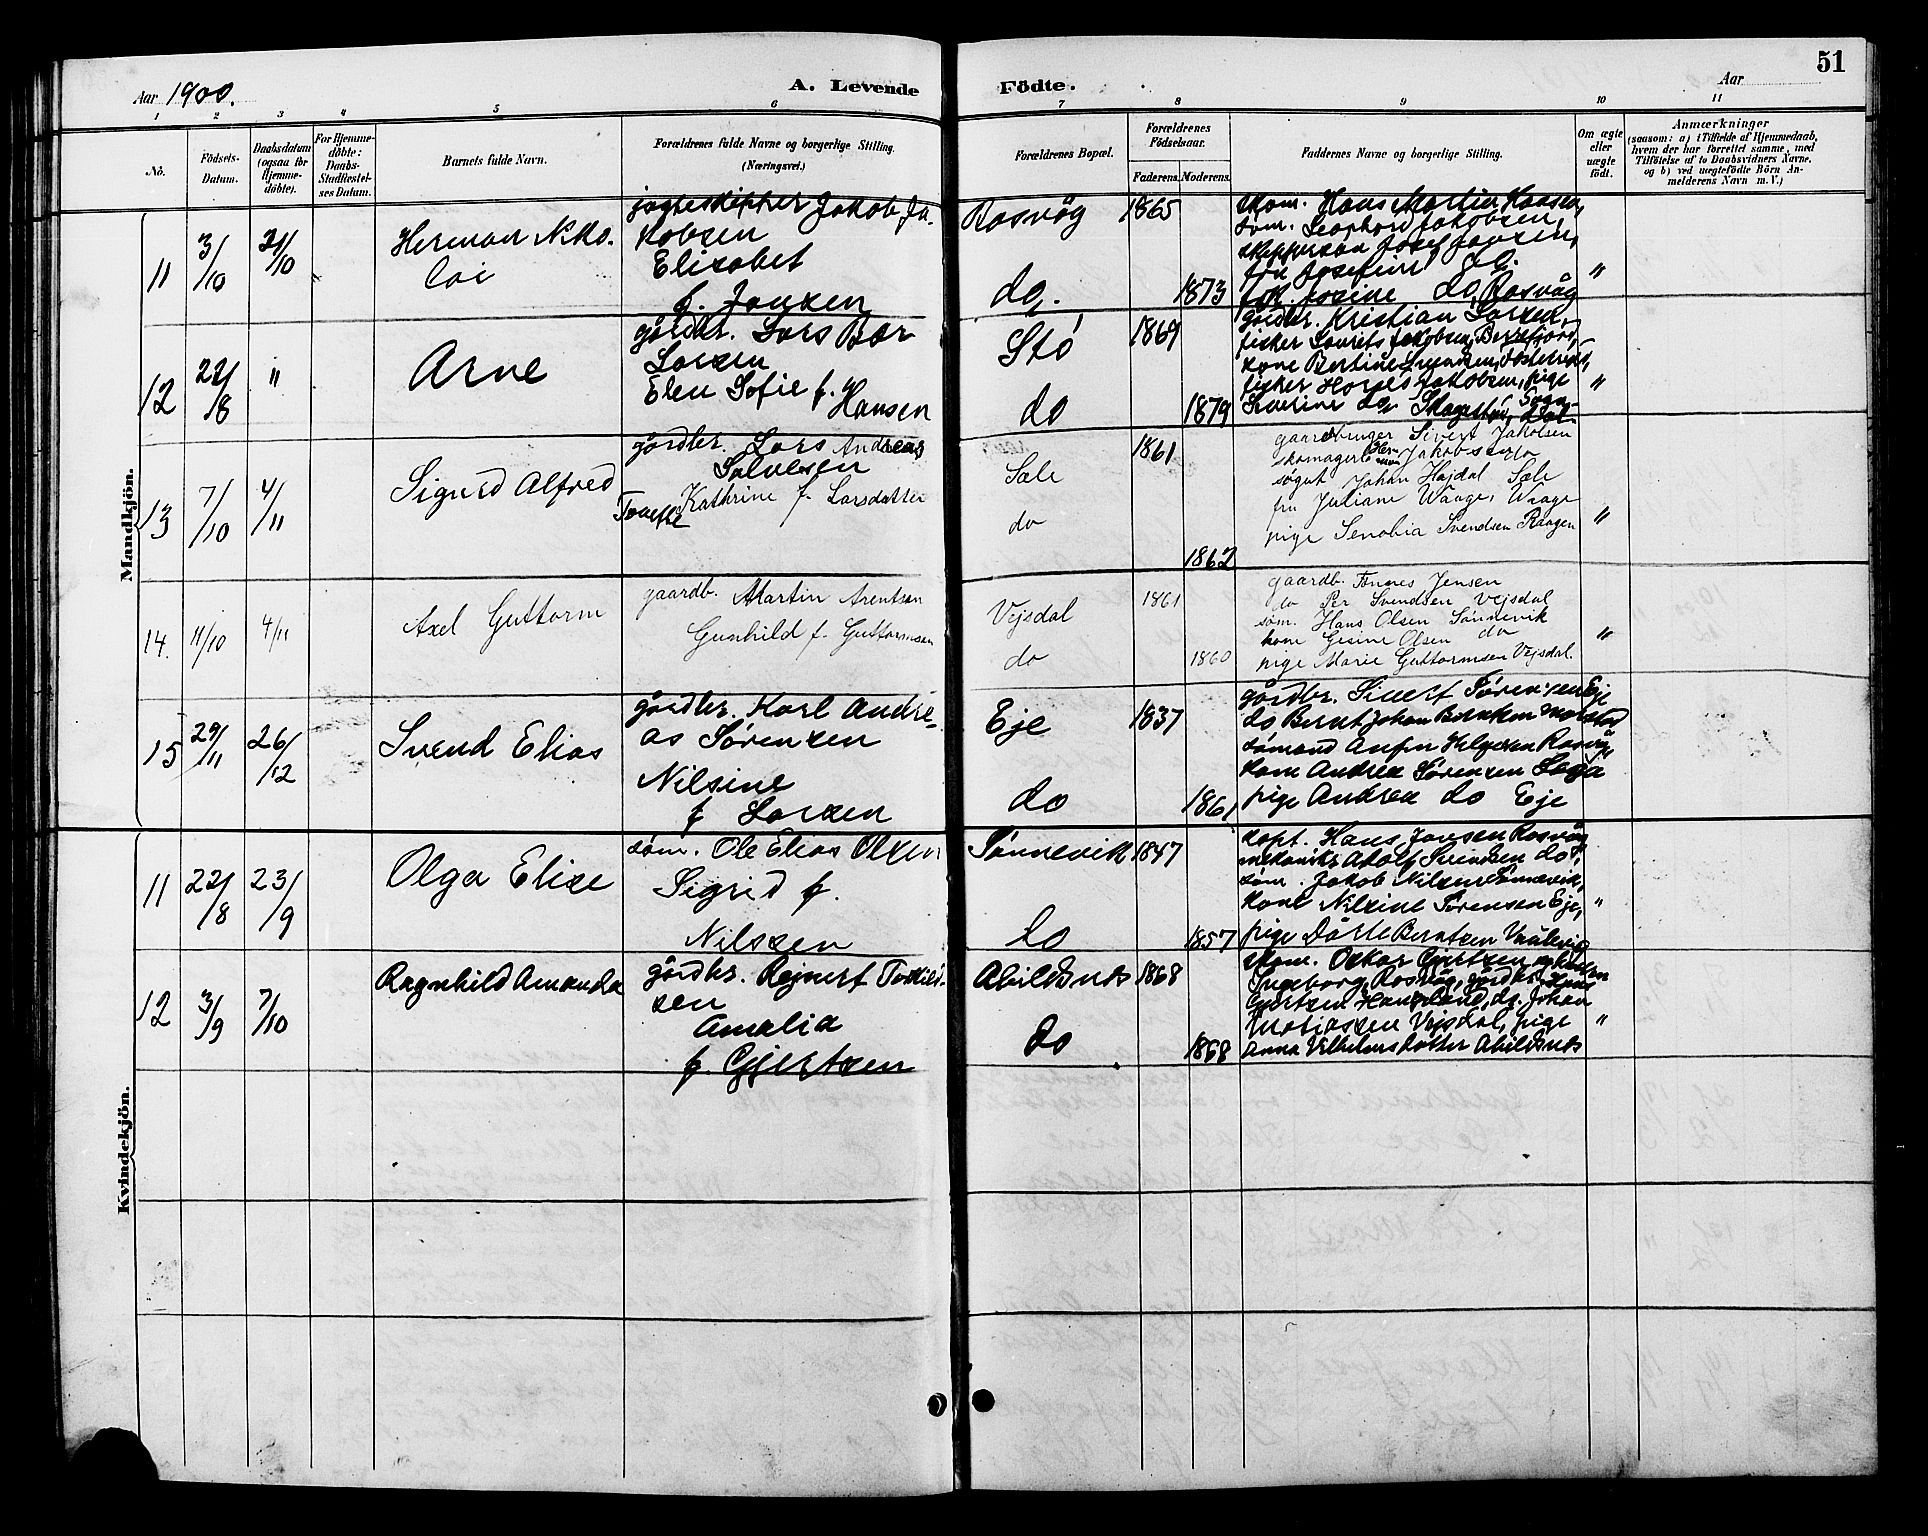 51
Aar 1900.
A. Levende Födte.
Aar
1 2 3 4 5 6 7 8 9 10 11
No.
Födsels-
Datum.
Daabsdatum
(ogsaa for
Hjemme-
döbte).
For Hjemme-
döbte:
Daabs-
Stadfæstel-
ses Datum.
Barnets fulde Navn.
Forældrenes fulde Navne og borgerlige Stilling.
(Næringsvei.)
Forældrenes Bopæl.
Forældrenes
Födselsaar.
Faderens. Moderens.
Faddernes Navne og borgerlige Stilling.
Om ægte
eller
uægte
födt.
Anmærkninger
(saasom: a) i Tilfælde af Hjemmedaab,
hvem der har forrettet samme, med
Tilföielse af to Daabsvidners Navne,
og b) ved uægtefödte Börn An-
melderens Navn m. V.)
Mandkjön.
11 3/10 21/10 "
Herman Niko-
lai
jagteskipper Jakob Ja-
kobsen
Elisabet
f. Jansen
Rosvåg 1865
do. 1873
skom. Hans Martin Hansen,
søm. Leonhard Jakobsen,
skippersøn Josef Jansen,
fru Josefine do.
frk. Josine do, Rosvåg
"
12 22/8 "
Arne
gårdbr. Lars Bær
Larsen
Elen Sofie f. Hansen
Stö 1869
do 1879
gårdbr. Kristian Larsen,
fisker Laurits Jakobsen, Berrefjord,
kone Bertine Svendsen,
fisker Jakobsen, pige
Severine do, Skagestad, Sogn-
dal
"
13 7/10 4/11
Sigurd Alfred
gårdbr. Lars Andreas
Salvesen
Tonette Kathrine f. Larsdatter
Sæle 1861
do
1862
gaardbruger Sivert Jakobsen
skomager Herman Jakobsen do
søgut Johan Højdal Sæle
fru Juliane Waage, Waage
pige Senobia Svendsen Raagen
"
14. 11/10 4/11
Axel Guttorm
gaardb. Martin Arentsen
Gunhild f. Guttormsen
Vejsdal 1861
do 1860
gaardb. Tønnes Jensen
do Per Svendsen Vejsdal
søm. Hans Olsen Sønnevik
kone Gesine Olsen do
pige Marie Guttormsen Vejsdal.
"
15 29/11 26/12
Svend Elias
gårdbr. Karl Andre-
as Sørensen
Nilsine
f Larsen
Eje 1837
do 1861
gårdbr. Sivert Sørensen Eje
do Bernt Johan Berntsen
sømand Anfin Helgesen Rosvåg
kone Andrea Sørensen Løga
pige Andrea do Eje
"
Kvindekjön.
11 22/8 23/9
Olga Elise
søm. Ole Elias Olsen
Sigrid f.
Nilssen
Sønnevik 1847
do 1857
kapt. Hans Jansen Rosvåg
mekanikr Adolf Svendsen do,
søm. Jakob Nilsen Sønnevik,
kone Nilsine Sørensen Eje,
pige Dårte Berntsen
"
12 3/9 7/10
Ragnhild Amanda
gårdbr. Rejnert Torkild-
sen
Amalia
f. Gjertsen
Abildsnes 1868
do 1868
skom. Oskar Gjertsen og hustru
Ingeborg, Rosvåg, gårdbr. Hans
Gjertsen Haugeland, do. Johan
Matiassen Vejsdal, pige
Anna Vilhelmsdotter Abildsnes
"